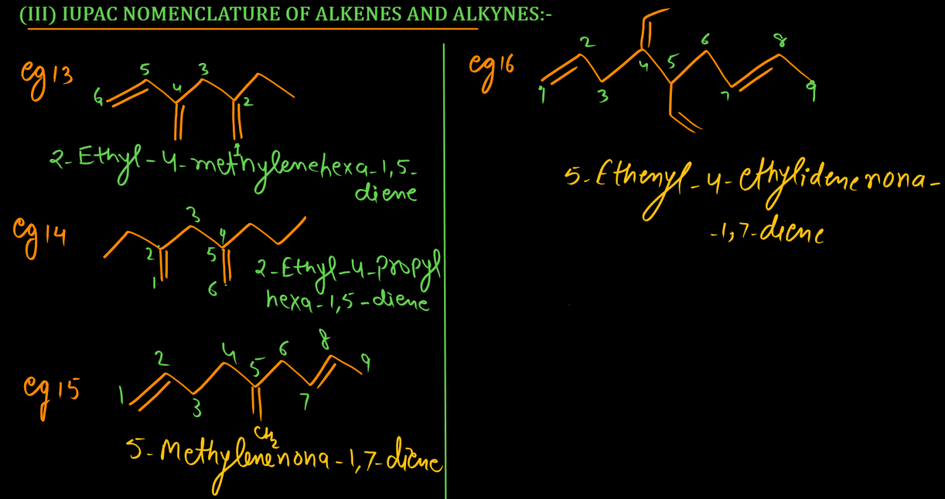 (III) IUPAC NOMENCLATURE OF ALKENES AND ALKYNES:-
eg13
6 5 4 3 2 1
2-Ethyl-4-methylenehexa-1,5-
diene
eg14
1 2 3 4 5 6
2-Ethyl-4-propyl
hexa-1,5-diene
eg15
1 2 3 4 5 6 7 8 9
CH2
5-Methylenenona-1,7-diene
eg16
1 2 3 4 5 6 7 8 9
5-Ethenyl-4-ethylidenenona-
-1,7-diene